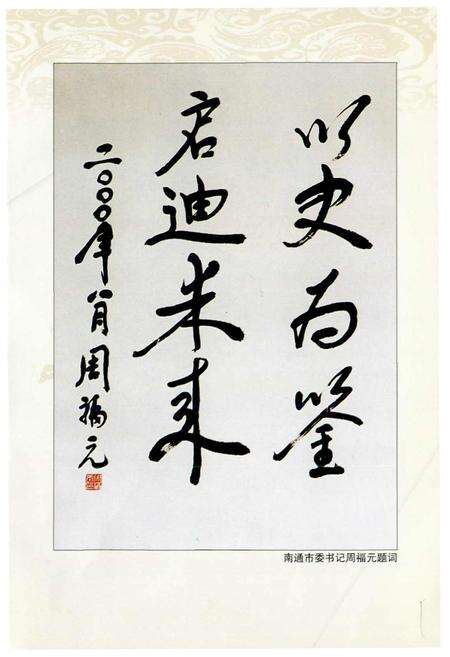 以史为鉴
启迪未来
二〇〇〇年八月周福元
南通市委书记周福元题词